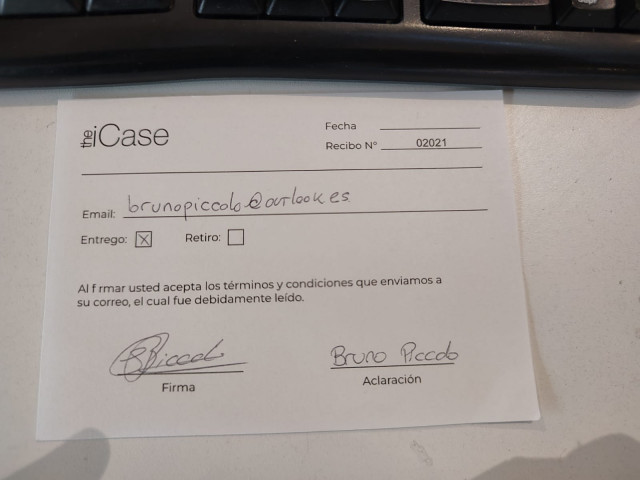 the iCase
Fecha
Recibo N° 02021
Email: brunopiccolo@outlook.es
Entrego: X Retiro:
Al f rmar usted acepta los términos y condiciones que enviamos a
su correo, el cual fue debidamente leído.
BPiccolo Bruno Piccolo
Firma Aclaración